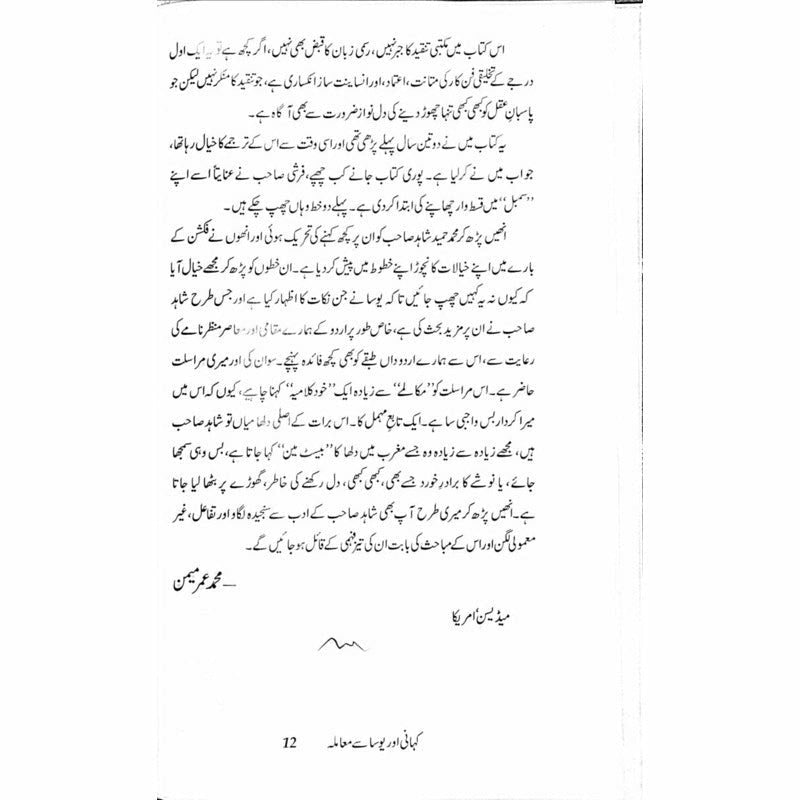 اس کتاب میں مکتبی تنقید کا جبر نہیں، رسمی زبان کا قبض بھی نہیں، اگر کچھ ہے تو یہ ایک اول
درجے کے تخلیقی فن کار کی متانت، اعتماد، اور انسانیت ساز انکساری ہے، جو تنقید کا منکر نہیں لیکن جو
پاسبانِ عقل کو کبھی کبھی تنہا چھوڑ دینے کی دل نواز ضرورت سے بھی آگاہ ہے۔
یہ کتاب میں نے دو تین سال پہلے پڑھی تھی اور اسی وقت سے اس کے ترجمے کا خیال رہا تھا،
جو اب میں نے کر لیا ہے۔ پوری کتاب جانے کب چھپے، فرشی صاحب نے عنایتاً اسے اپنے
”سمبل“ میں قسط وار چھاپنے کی ابتدا کر دی ہے۔ پہلے دو خط وہاں چھپ چکے ہیں۔
انھیں پڑھ کر محمد حمید شاہد صاحب کو ان پر کچھ کہنے کی تحریک ہوئی اور انھوں نے فکشن کے
بارے میں اپنے خیالات کا نچوڑ اپنے خطوط میں پیش کر دیا ہے۔ ان خطوں کو پڑھ کر مجھے خیال آیا
کہ کیوں نہ یہ کہیں چھپ جائیں تاکہ یوسا نے جن نکات کا اظہار کیا ہے اور جس طرح شاہد
صاحب نے ان پر مزید بحث کی ہے، خاص طور پر اردو کے ہمارے مقامی اور معاصر منظر نامے کی
رعایت سے، اس سے ہمارے اردو داں طبقے کو بھی کچھ فائدہ پہنچے۔ سو ان کی اور میری مراسلت
حاضر ہے۔ اس مراسلت کو ”مکالمے“ سے زیادہ ایک ”خود کلامیہ“ کہنا چاہیے، کیوں کہ اس میں
میرا کردار بس واجبی سا ہے۔ ایک تابع مہمل کا۔ اس برات کے اصلی دلھا میاں تو شاہد صاحب
ہیں، مجھے زیادہ سے زیادہ وہ جسے مغرب میں دلھا کا ”بیسٹ مین“ کہا جاتا ہے، بس وہی سمجھا
جائے، یا نوشے کا برادرِ خورد جسے بھی، کبھی کبھی، دل رکھنے کی خاطر، گھوڑے پر بٹھا لیا جاتا
ہے۔ انھیں پڑھ کر میری طرح آپ بھی شاہد صاحب کے ادب سے سنجیدہ لگاو اور تفاعل، غیر
معمولی لگن اور اس کے مباحث کی بابت ان کی تیز فہمی کے قائل ہو جائیں گے۔
— محمد عمر میمن
میڈیسن، امریکا
کہانی اور یوسا سے معاملہ 12